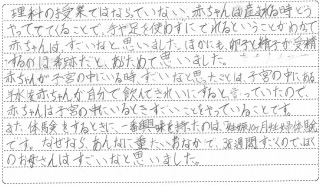 理科の授業ではならっていない、赤ちゃんは産まれる時どう
やってでてくることで、手や足を使わずにでれるということがわかって
赤ちゃんは、すごいなと思いました。ほかにも、卵子と精子が受精
するのは奇跡だと、あらためて思いました。
赤ちゃんが子宮の中にいる時、すごいなと思ったことは、子宮の中にある
羊水を赤ちゃんが自分で飲んできれいにすると言っていたので、
赤ちゃんは子宮の中にいるときすごいことをやっていることです。
また、体験をするときに、一番興味を持ったのは、妊娠10ヶ月妊婦体験
です。なぜなら、あんなに重たいおなかで、38週間すごくのでぼく
のお母さんはすごいなと思いました。